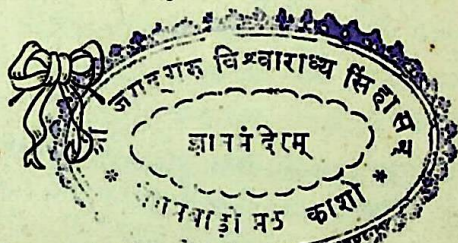 जगद्गुरु विश्वाराध्य सिंहासन
ज्ञानमंदिरम्
मठ काशी